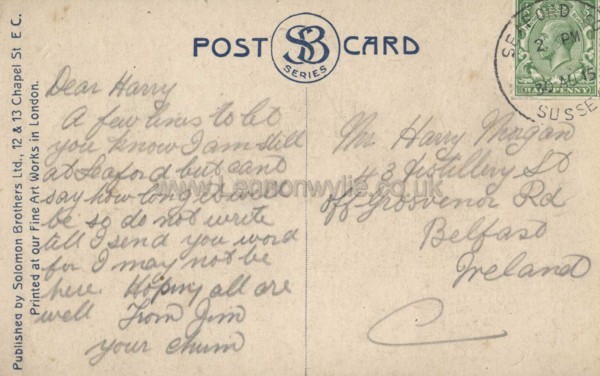 POST CARD
SB
SERIES
SEAFORD
2 PM
AU 15
SUSSE
HALFPENNY
Published by Solomon Brothers Ltd., 12 & 13 Chapel St E C.
Printed at our Fine Art Works in London.
Dear Harry
A few lines to let
you know I am still
at Seaford but cant
say how long it will
be so do not write
till I send you word
for I may not be
here. Hoping all are
well From Jim
your chum
Mr Harry Morgan
43 Distillery St
off Grosvenor Rd
Belfast
Ireland
www.Lennonwylie.co.uk